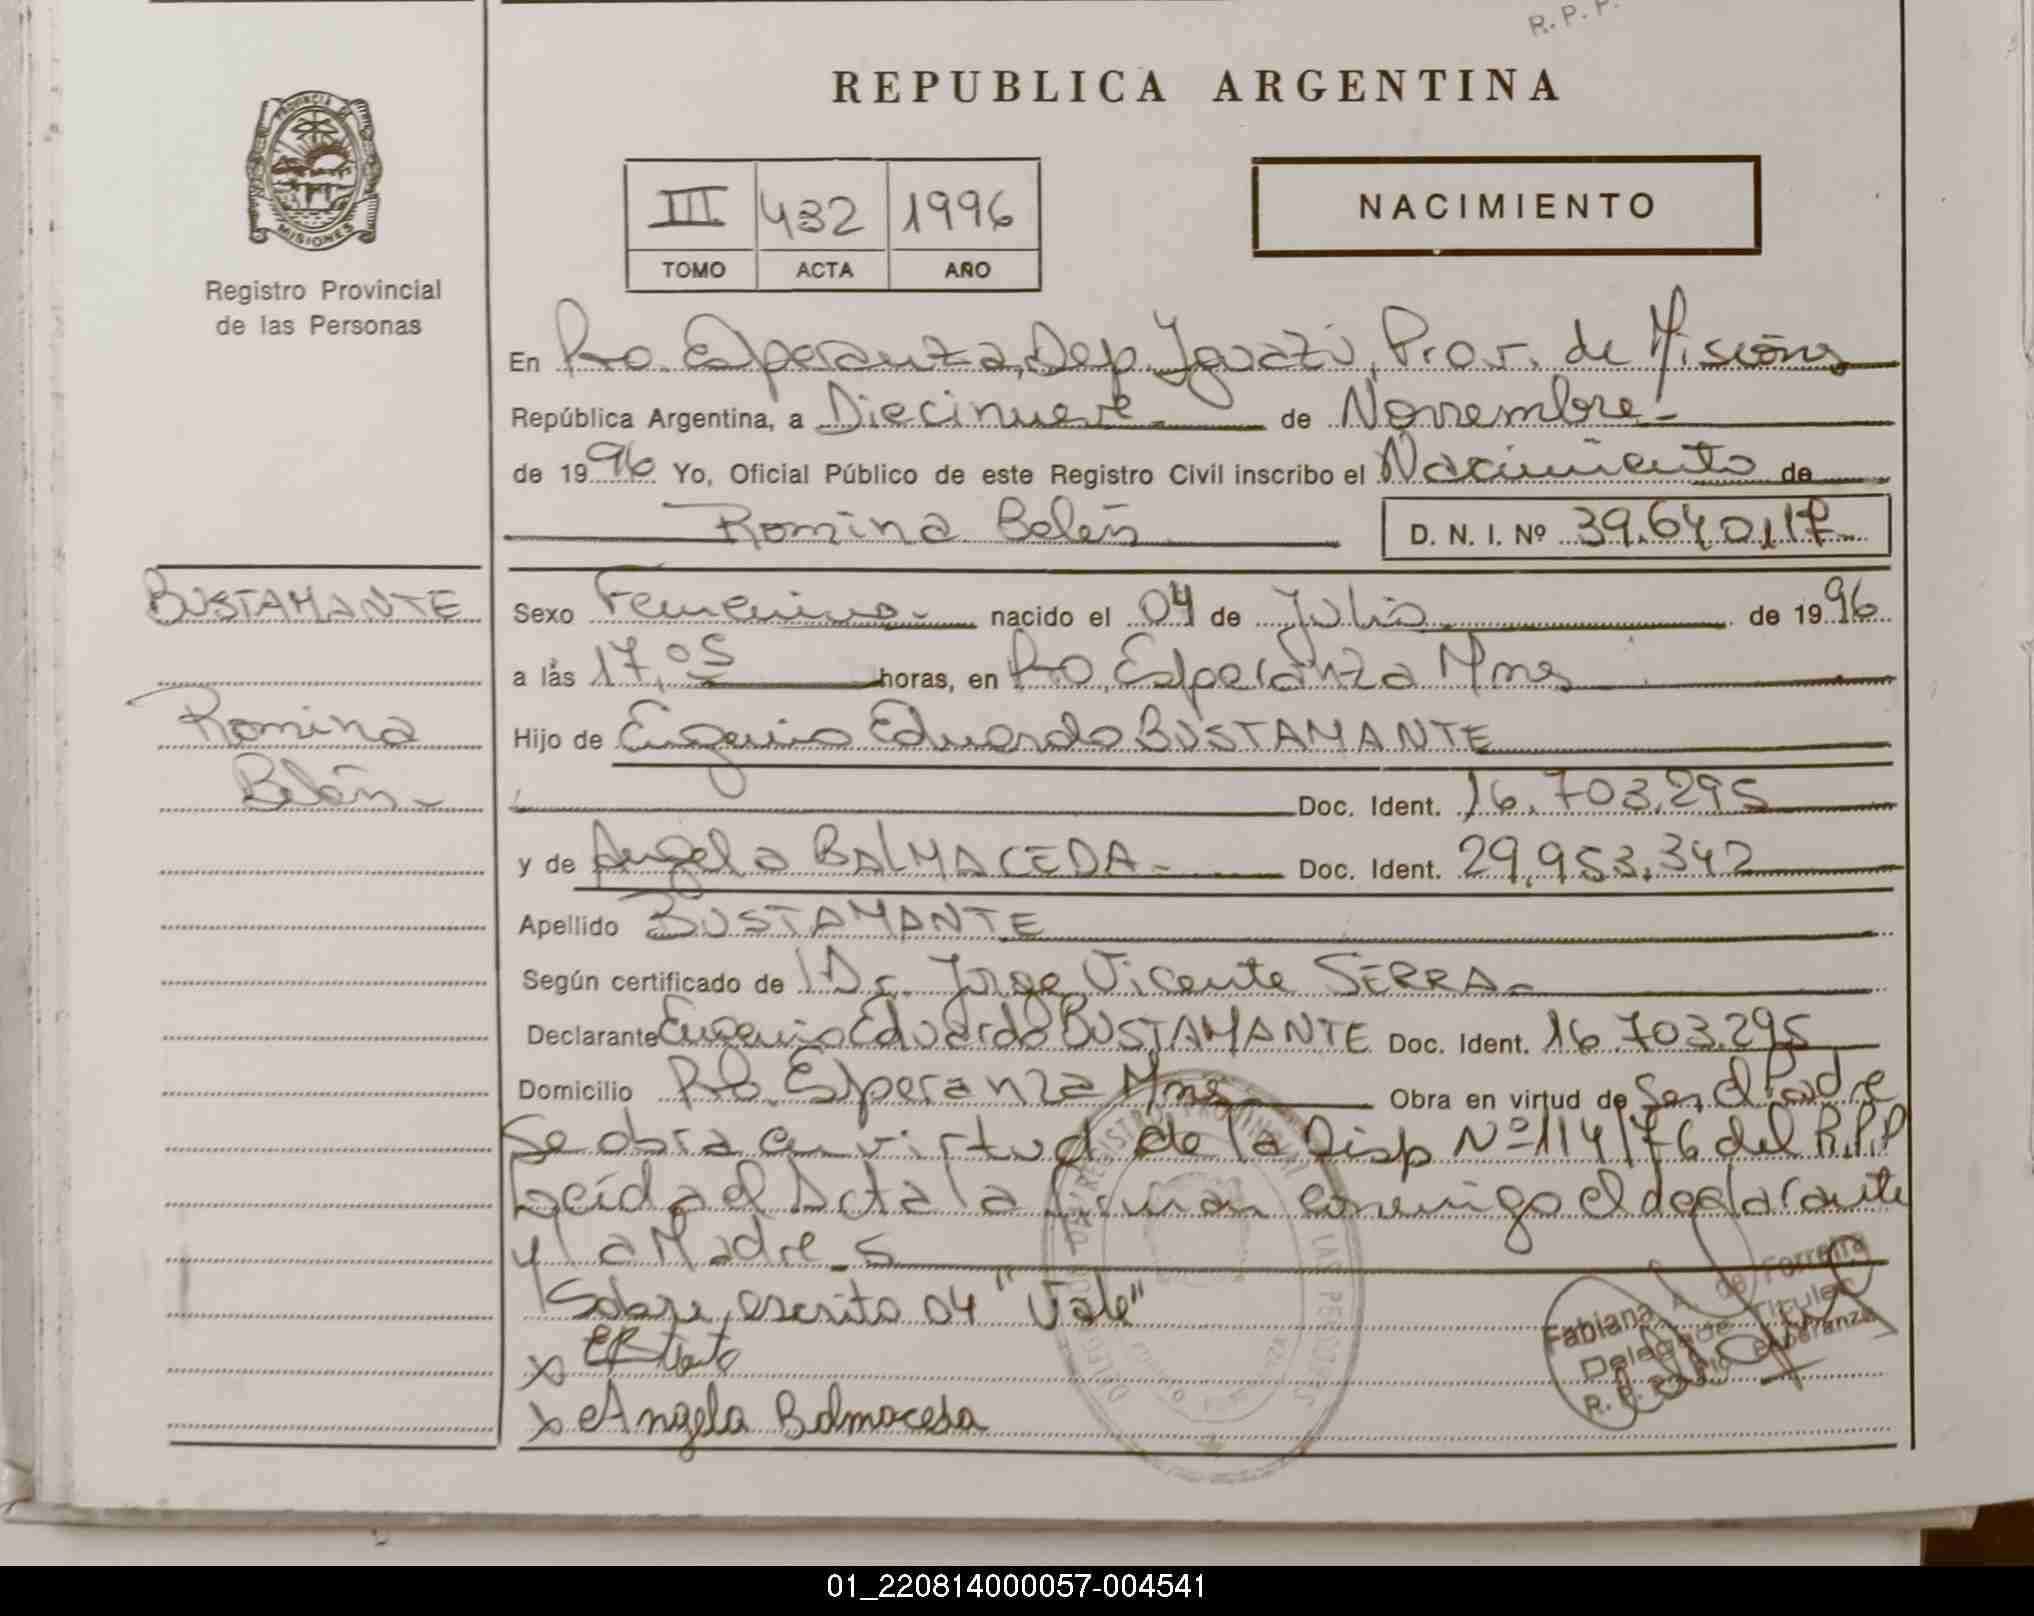 R.P.P.
REPUBLICA ARGENTINA
PROVINCIA DE
MISIONES
Registro Provincial
de las Personas
III 432 1996
TOMO ACTA AÑO
NACIMIENTO
En Pto. Esperanza, Dep. Iguazú, Prov. de Misiones
República Argentina, a Diecinueve - de Noviembre -
de 1996 Yo, Oficial Público de este Registro Civil inscribo el Nacimiento de
Romina Belén D. N. I. Nº 39.640.117
BUSTAMANTE
Romina
Belén -
Sexo Femenino - nacido el 04 de Julio de 1996
a las 17,05 horas, en Pto. Esperanza Mnes
Hijo de Eugenio Eduardo BUSTAMANTE
Doc. Ident. 16.703.295
y de Angela BALMACEDA - Doc. Ident. 29.953.342
Apellido BUSTAMANTE
Según certificado de Dr. Jorge Vicente SERRA -
Declarante Eugenio Eduardo BUSTAMANTE Doc. Ident. 16.703.295
Domicilio Pto. Esperanza Mnes Obra en virtud de Ser el Padre
Se obra en virtud de la Disp Nº 114/76 del R.P.P
Leída el Acta la firman conmigo el declarante
y la Madre
Sobre escrito 04 "Vale"
x
x Angela Balmaceda
REGISTRO PROVINCIAL
LAS PERSONAS
Fabiana A. de Ferreira
Delegada Titular
R. P. P. Pto Esperanza
01_220814000057-004541